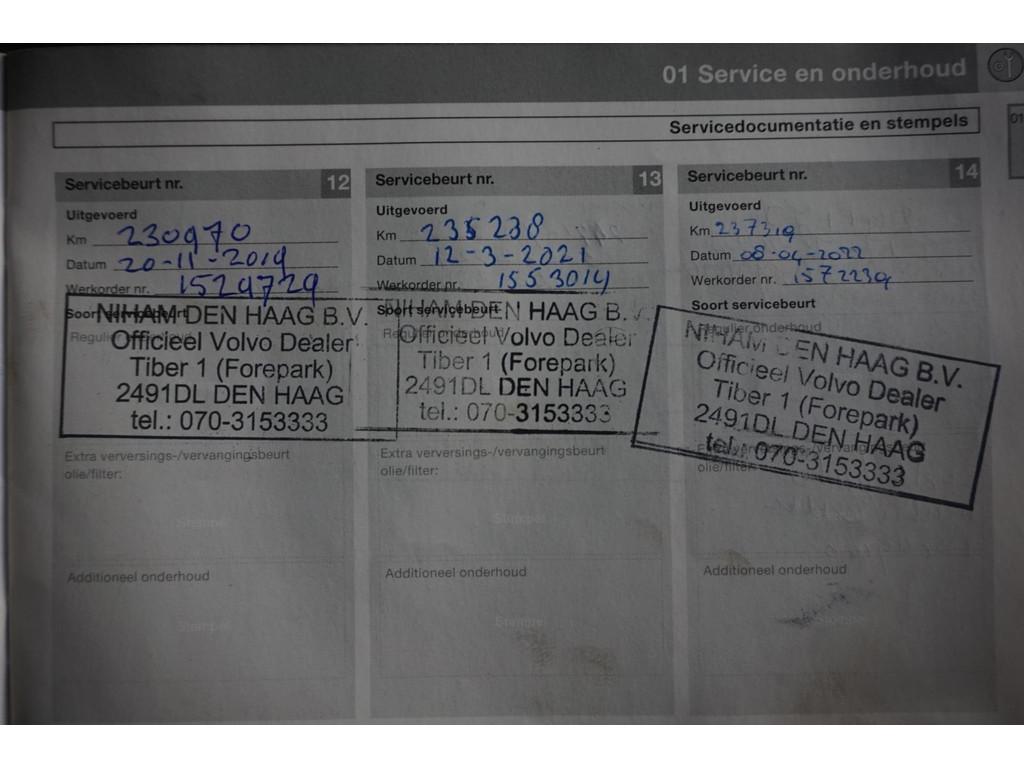 01 Service en onderhoud
01
Servicedocumentatie en stempels
Servicebeurt nr. 12
Uitgevoerd
Km 230970
Datum 20-11-2019
Werkorder nr. 1529729
Soort servicebeurt
Regulier onderhoud
NIHAM DEN HAAG B.V.
Officieel Volvo Dealer
Tiber 1 (Forepark)
2491DL DEN HAAG
tel.: 070-3153333
Extra verversings-/vervangingsbeurt
olie/filter:
Stempel
Additioneel onderhoud
Stempel
Servicebeurt nr. 13
Uitgevoerd
Km 235238
Datum 12-3-2021
Werkorder nr. 1553014
Soort servicebeurt
Regulier onderhoud
NIHAM DEN HAAG B.V.
Officieel Volvo Dealer
Tiber 1 (Forepark)
2491DL DEN HAAG
tel.: 070-3153333
Extra verversings-/vervangingsbeurt
olie/filter:
Stempel
Additioneel onderhoud
Stempel
Servicebeurt nr. 14
Uitgevoerd
Km 237319
Datum 08-04-2022
Werkorder nr. 1572239
Soort servicebeurt
Regulier onderhoud
NIHAM DEN HAAG B.V.
Officieel Volvo Dealer
Tiber 1 (Forepark)
2491DL DEN HAAG
tel.: 070-3153333
olie/filter:
Additioneel onderhoud
Stempel